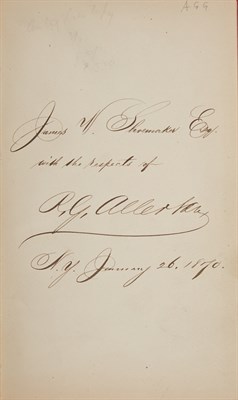 James W. Shoemaker Esq.
with the respects of
R. G. Allerton
N.Y. January 26. 1870.